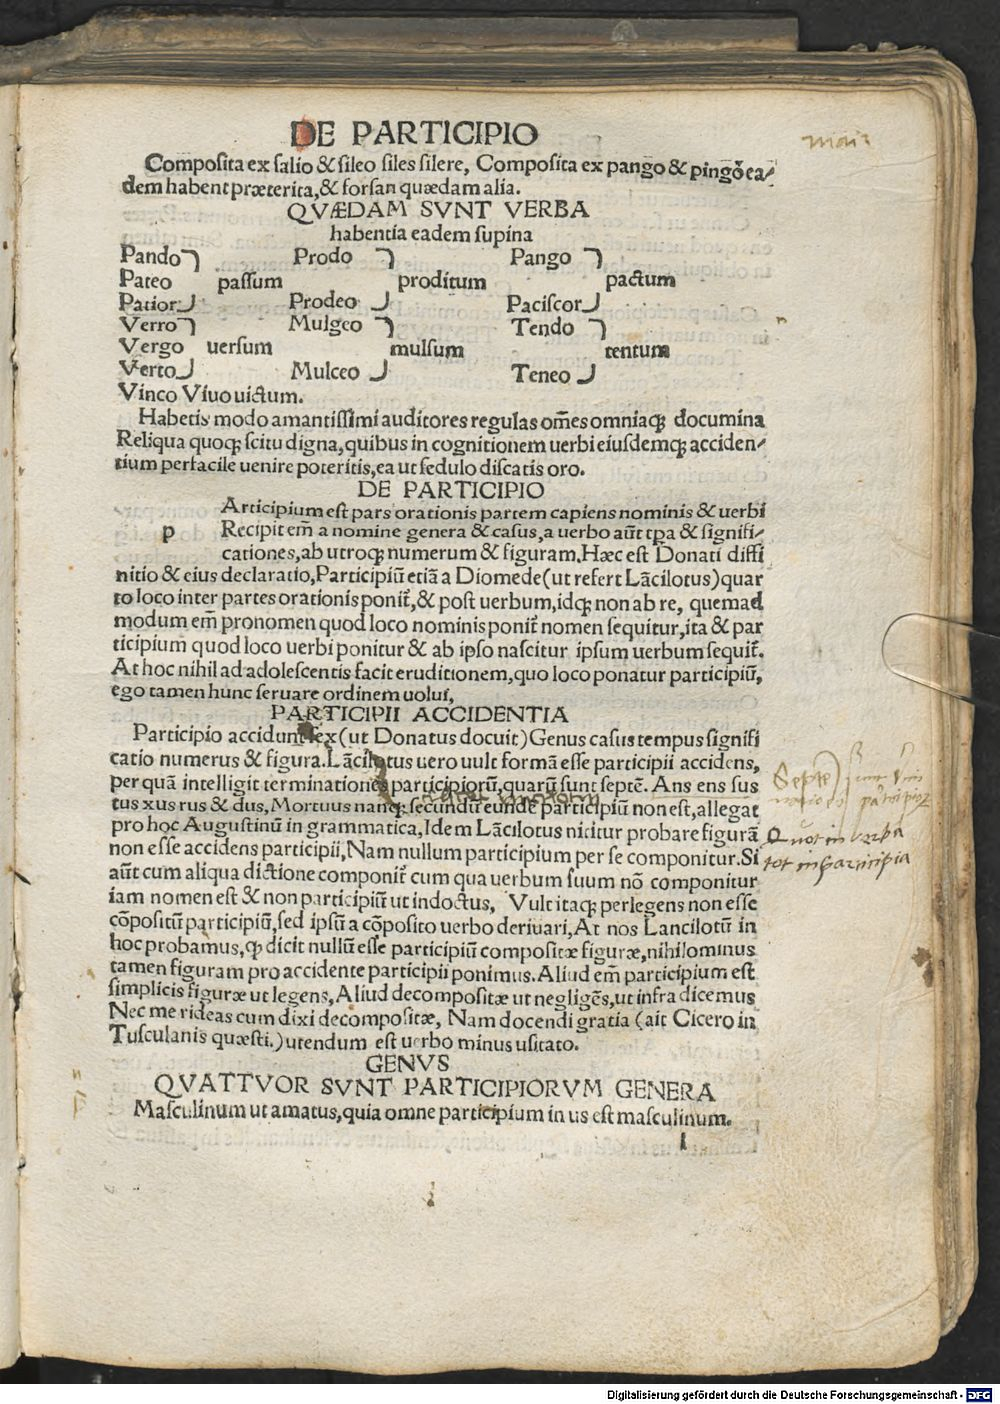 DE PARTICIPIO
Composita ex salio & sileo siles silere, Composita ex pango & pingo ea⸗
dem habent præterita, & forsan quædam alia.
QVÆDAM SVNT VERBA
habentia eadem supina
Pando Prodo Pango
Pateo passum proditum pactum
Patior Prodeo Paciscor
Verro Mulgeo Tendo
Vergo uersum mulsum tentum
Verto Mulceo Teneo
Vinco Viuo uictum.
Habetis modo amantissimi auditores regulas om̄es omniaqꝫ documina
Reliqua quoqꝫ scitu digna, quibus in cognitionem uerbi eiusdemqꝫ acciden⸗
tium perfacile uenire poteritis, ea ut sedulo discatis oro.
DE PARTICIPIO
p Articipium est pars orationis partem capiens nominis & uerbi
Recipit em̄ a nomine genera & casus, a uerbo aūt tp̄a & signifi⸗
cationes, ab utroqꝫ numerum & figuram. Hæc est Donati diffi
nitio & eius declaratio, Participiū etiā a Diomede (ut refert Lācilotus) quar
to loco inter partes orationis ponit̄, & post uerbum, idqꝫ non ab re, quemad
modum em̄ pronomen quod loco nominis ponit̄ nomen sequitur, ita & par
ticipium quod loco uerbi ponitur & ab ipso nascitur ipsum uerbum sequit̄.
At hoc nihil ad adolescentis facit eruditionem, quo loco ponatur participiū,
ego tamen hunc seruare ordinem uolui,
PARTICIPII ACCIDENTIA
Participio accidunt sex (ut Donatus docuit) Genus casus tempus signifi
catio numerus & figura. Lācilotus uero uult formā esse participii accidens,
per quā intelligit terminationes participiorū, quarū sunt septē. Ans ens sus
tus xus rus & dus, Mortuus nanqꝫ secundū eundē participiū non est, allegat
pro hoc Augustinū in grammatica, Idem Lācilotus nititur probare figurā
non esse accidens participii, Nam nullum participium per se componitur. Si
aūt cum aliqua dictione componit̄ cum qua uerbum suum nō componitur
iam nomen est & non participiū ut indoctus, Vult itaqꝫ perlegens non esse
cōpositū participiū, sed ipsū a cōposito uerbo deriuari, At nos Lancilotū in
hoc probamus, ꝙ dicit nullū esse participiū compositæ figuræ, nihilominus
tamen figuram pro accidente participii ponimus. Aliud em̄ participium est
simplicis figuræ ut legens, Aliud decompositæ ut negligēs, ut infra dicemus
Nec me rideas cum dixi decompositæ, Nam docendi gratia (ait Cicero in
Tusculanis quæsti.) utendum est uerbo minus usitato.
GENVS
QVATTVOR SVNT PARTICIPIORVM GENERA
Masculinum ut amatus, quia omne participium in us est masculinum.
l
Septē sunt
Quot in verba
tot in participia
Digitalisierung gefördert durch die Deutsche Forschungsgemeinschaft - DFG